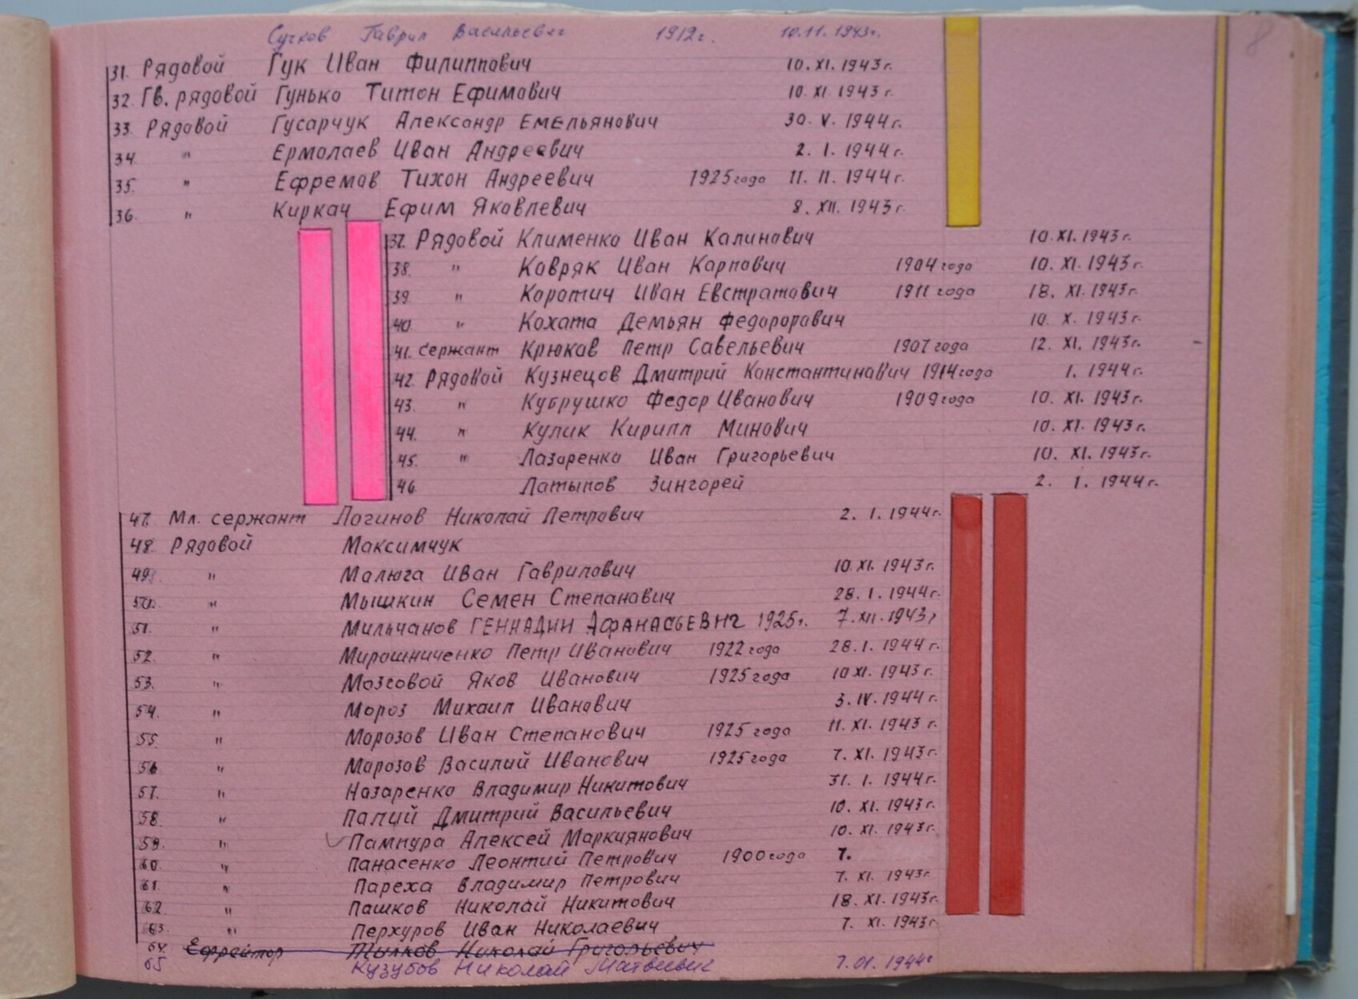 8
Сучков Гаврил Васильевич 1912г. 10.11.1943г.
31. Рядовой Гук Иван Филиппович 10.XI.1943г.
32. Гв. рядовой Гунько Титон Ефимович 10.XI.1943г.
33. Рядовой Гусарчук Александр Емельянович 30.V.1944г.
34. " Ермолаев Иван Андреевич 2.I.1944г.
35. " Ефремов Тихон Андреевич 1925 года 11.II.1944г.
36. " Киркач Ефим Яковлевич 8.XII.1943г.
37. Рядовой Клименко Иван Калинович 10.XI.1943г.
38. " Ковряк Иван Карпович 1904 года 10.XI.1943г.
39. " Коротич Иван Евстратович 1911 года 18.XI.1943г.
40. " Кохата Демьян Федорорович 10.X.1943г.
41. Сержант Крюков Петр Савельевич 1907 года 12.XI.1943г.
42. Рядовой Кузнецов Дмитрий Константинович 1914 года I.1944г.
43. " Кубрушко Федор Иванович 1909 года 10.XI.1943г.
44. " Кулик Кирилл Минович 10.XI.1943г.
45. " Лазаренко Иван Григорьевич 10.XI.1943г.
46. Латыпов Зингорей 2.I.1944г.
47. Мл. сержант Логинов Николай Петрович 2.I.1944г.
48. Рядовой Максимчук
49. " Малюга Иван Гаврилович 10.XI.1943г.
50. " Мышкин Семен Степанович 28.I.1944г.
51. " Мильчанов Геннадий Афанасьевич 1925г. 7.XII.1943г
52. " Мирошниченко Петр Иванович 1922 года 28.I.1944г.
53. " Мозговой Яков Иванович 1925 года 10.XI.1943г.
54. " Мороз Михаил Иванович 3.IV.1944г.
55. " Морозов Иван Степанович 1925 года 11.XI.1943г.
56. " Морозов Василий Иванович 1925 года 7.XI.1943г.
57. " Назаренко Владимир Никитович 31.I.1944г.
58. " Папий Дмитрий Васильевич 10.XI.1943г.
59. " Пампура Алексей Маркиянович 10.XI.1943г.
60. " Панасенко Леонтий Петрович 1900 года 7.
61. " Пареха Владимир Петрович 7.XI.1943г.
62. " Пашков Николай Никитович 18.XI.1943г.
63. " Перхуров Иван Николаевич 7.XI.1943г.
64. Ефрейтор Николай Григорьевич
65 Кузубов Николай Матвеевич 7.01.1944г